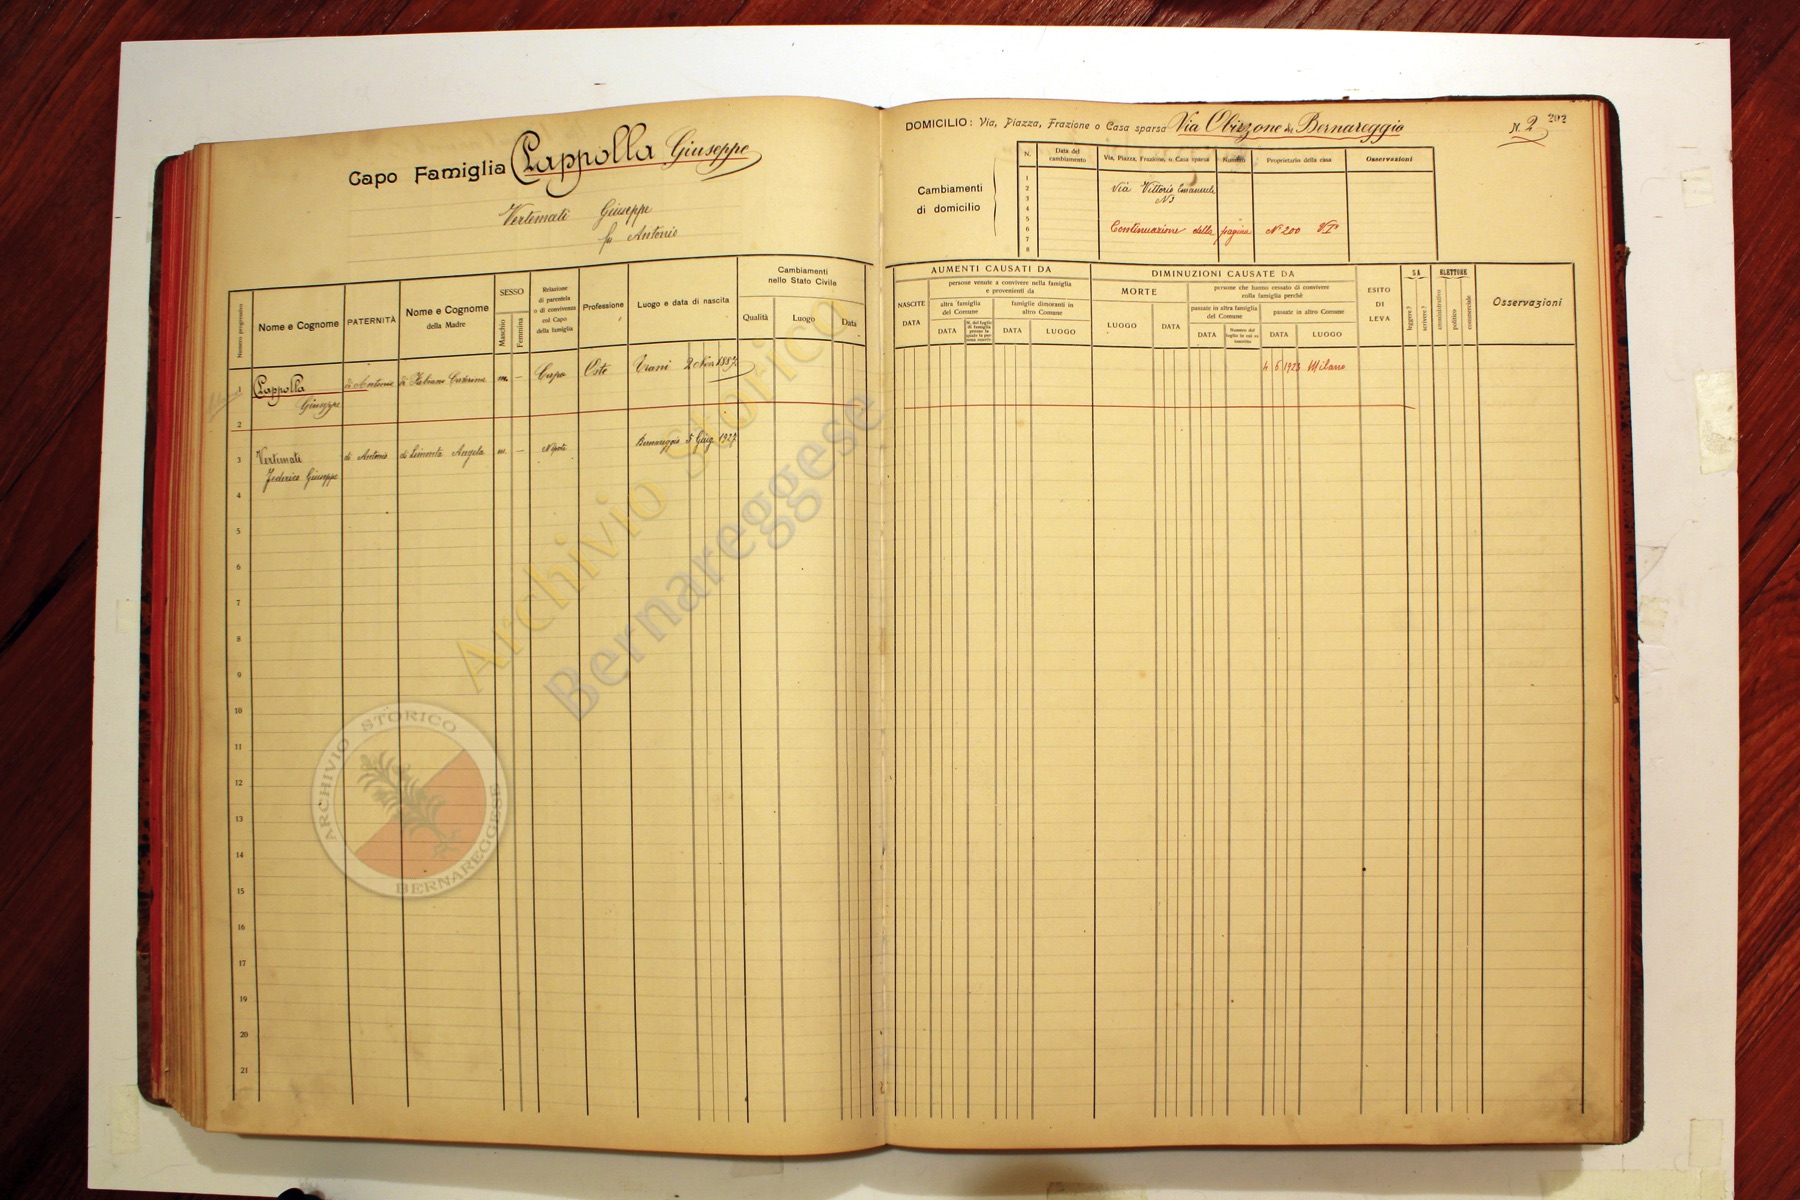 Capo Famiglia Lappolla Giuseppe
Vertemati Giuseppe
fu Antonio
Numero progressivo
Nome e Cognome
PATERNITÀ
Nome e Cognome
della Madre
SESSO
Maschio
Femmina
Relazione
di parentela
o di convivenza
col Capo
della famiglia
Professione
Luogo e data di nascita
Cambiamenti
nello Stato Civile
Qualità
Luogo
Data
1 Lappolla di Antonio di Fabiano m. — Capo Oste Trani 2 Nov. 1887
Giuseppe
2
3 Vertimati di Antonio di Limonta Angela m. — Nipote Bernareggio 5 Giug. 1927
Federico Giuseppe
4
5
6
7
8
9
10
11
12
13
14
15
16
17
18
19
20
21
DOMICILIO: Via, Piazza, Frazione o Casa sparsa Via Obizzone da Bernareggio
N. 2
202
Cambiamenti
di domicilio
N.
Data del
cambiamento
Via, Piazza, Frazione, o Casa sparsa
Numero
Proprietario della casa
Osservazioni
1
2 Via Vittorio Emanuele
3 N 3
4
5 Continuazione della pagina N° 200
6
7
8
AUMENTI CAUSATI DA
NASCITE
DATA
persone venute a convivere nella famiglia
e provenienti da
altra famiglia
del Comune
DATA
N. del foglio
di famiglia
famiglie dimoranti in
altro Comune
DATA
LUOGO
DIMINUZIONI CAUSATE DA
MORTE
LUOGO
DATA
persone che hanno cessato di convivere
colla famiglia perchè
passate in altra famiglia
del Comune
DATA
Numero del
foglio in cui si
passate in altro Comune
DATA
LUOGO
ESITO
DI
LEVA
SA
leggere?
scrivere?
ELETTORE
amministrativo
politico
commerciale
Osservazioni
4 6 1923 Milano
Archivio Storico
Bernareggese
ARCHIVIO STORICO
BERNAREGGESE